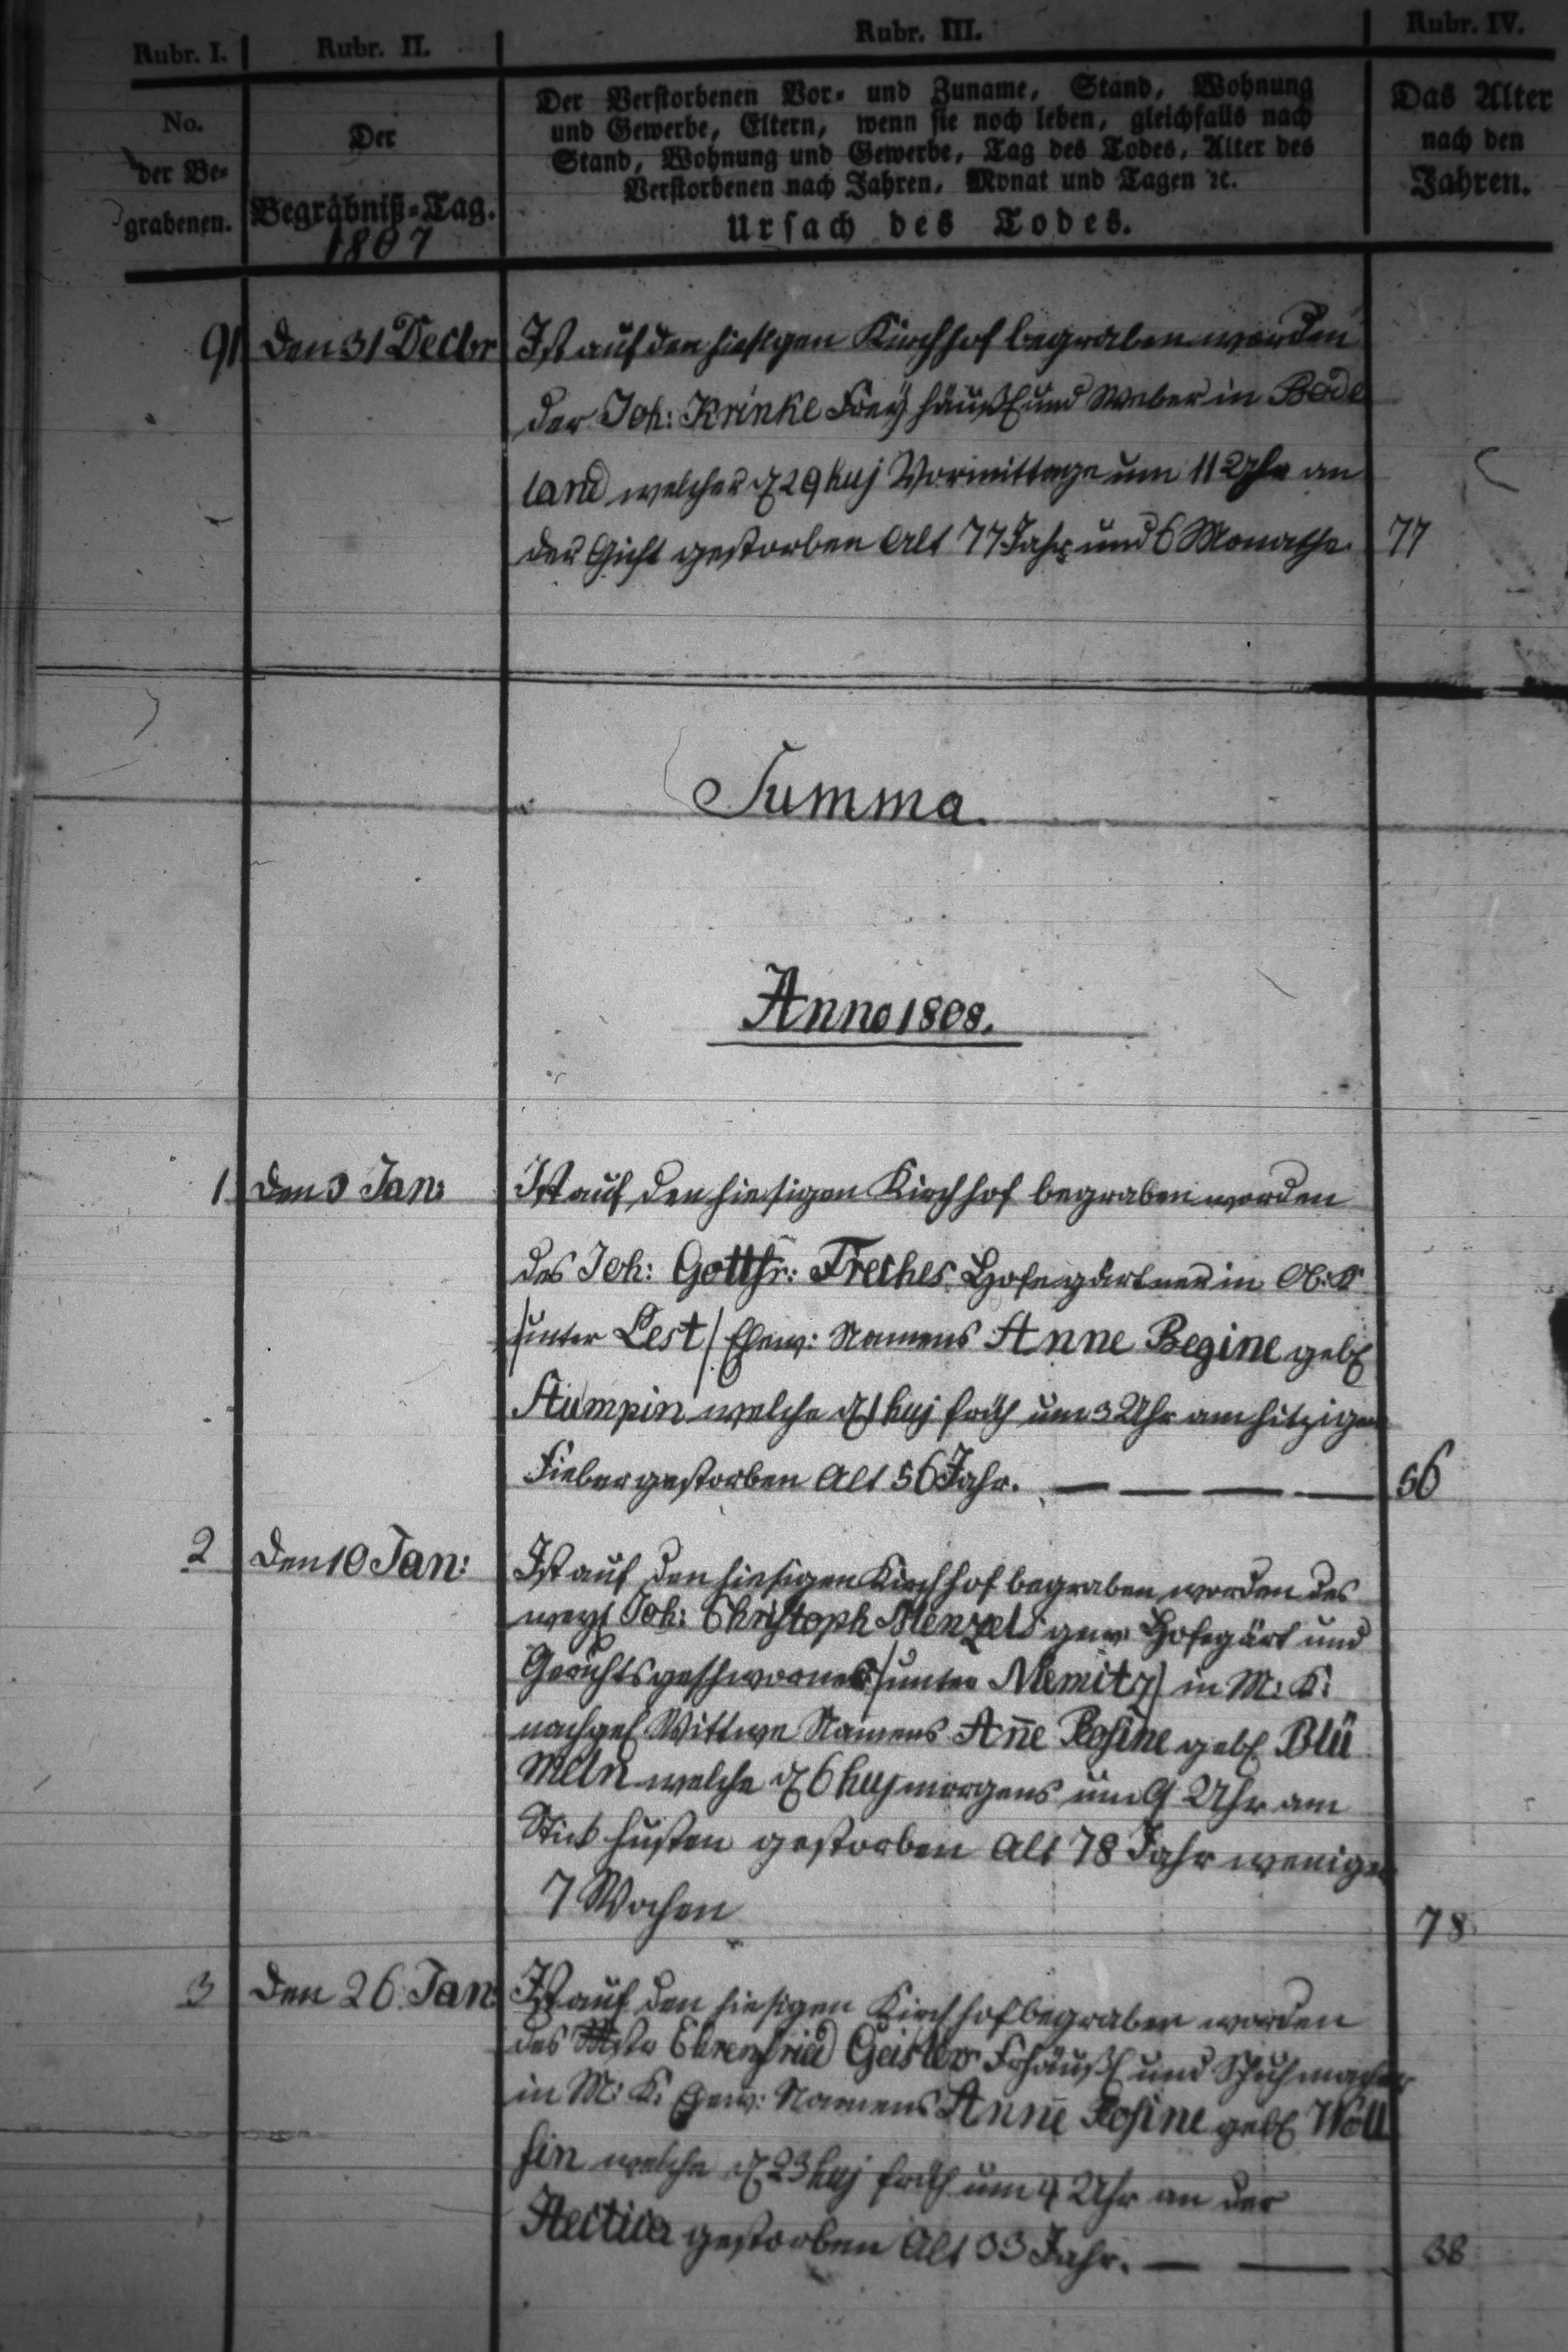 Rubr. I.
Rubr. II.
Rubr. III.
Rubr. IV.
No.
der Be-
grabenen.
Der
Begräbniß-Tag.
1807
Der Verstorbenen Vor- und Zuname, Stand, Wohnung
und Gewerbe, Eltern, wenn sie noch leben, gleichfalls nach
Stand, Wohnung und Gewerbe, Tag des Todes, Alter des
Verstorbenen nach Jahren, Monat und Tagen ꝛc.
Ursach des Todes.
Das Alter
nach den
Jahren.
91 den 31 Decbr Ist auf den hiesigen Kirchhof begraben worden
der Joh: Krinke Freyhäußl und Weber in Bade
land welcher d 29 huj Vormittage um 11 Uhr an
der Gicht gestorben Alt 77 Jahr und 6 Monathe 77
Summa
Anno 1808.
1 den 3 Jan: Ist auf den hiesigen Kirchhof begraben worden
des Joh: Gottfr: Freches Hofegärtner in Ob: K
/unter Lest/ Ehew: Namens Anne Regine geb
Stumpin welche d 1 huj früh um 3 Uhr am hitzigen
Fieber gestorben Alt 56 Jahr. 56
2 den 10 Jan: Ist auf den hiesigen Kirchhof begraben worden des
weyl Joh: Christoph Menzels gew: Hofegärt und
Gerichtsgeschworner /unter Nemitz/ in M: K:
nachgel Wittwe Namens Añe Rosine geb Blü
meln welche d 6 huj morgens um 9 Uhr am
Stickhusten gestorben Alt 78 Jahr weniger
7 Wochen 78
3 den 26 Jan: Ist auf den hiesigen Kirchhof begraben worden
des Mstr Ehrenfried Geisler Frhäußl und Schuhmacher
in M: K: Ehew: Namens Anne Rosine geb Wöll
fin welche d 23 huj früh um 4 Uhr an der
Hectica gestorben Alt 33 Jahr. 38